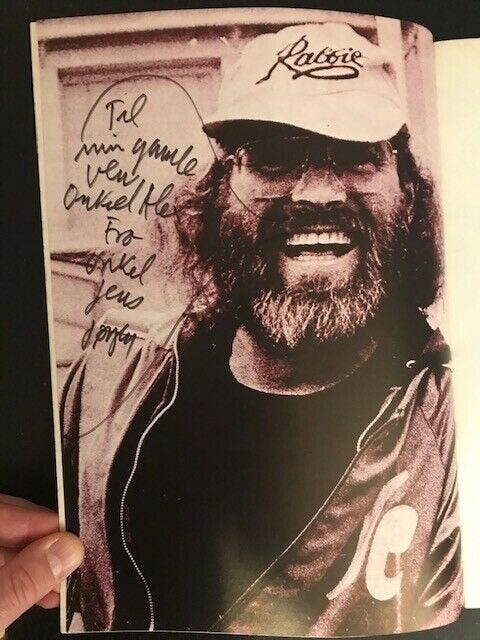 Rabbie
Til
min gamle
ven,
onkel Ale
Fra
onkel
Jens